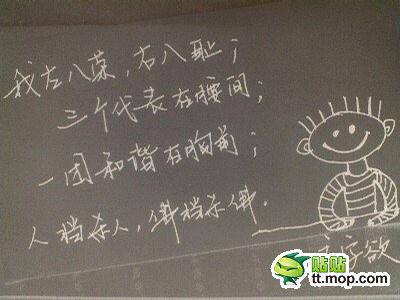 我左八荣，右八耻；
三个代表在腰间；
一团和谐在胸前；
人档杀人，佛档杀佛.
贴贴
tt.mop.com